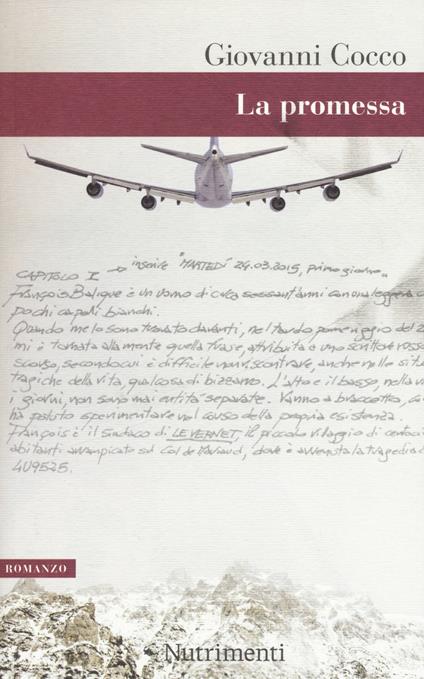 Giovanni Cocco
La promessa
CAPITOLO I → inserire "MARTEDÍ 24.03.2015, primo giorno"
François Balique è un uomo di circa sessant'anni con una leggera
pochi capelli bianchi.
Quando me lo sono trovato davanti, nel tardo pomeriggio del 2
mi è tornata alla mente quella frase, attribuita a uno scrittore russo
scorso, secondo cui è difficile non riscontrare, anche nelle situ
tragiche della vita, qualcosa di bizzarro. L'alto e il basso, nella vi
i giorni, non sono mai entità separate. Vanno a braccetto, co
ha potuto sperimentare nel corso della propria esistenza.
François è il sindaco di LE VERNET, il piccolo villaggio di cento
abitanti arrampicato sul Col de Mariaud, dove è avvenuta la tragedia d
4U9525.
ROMANZO
Nutrimenti